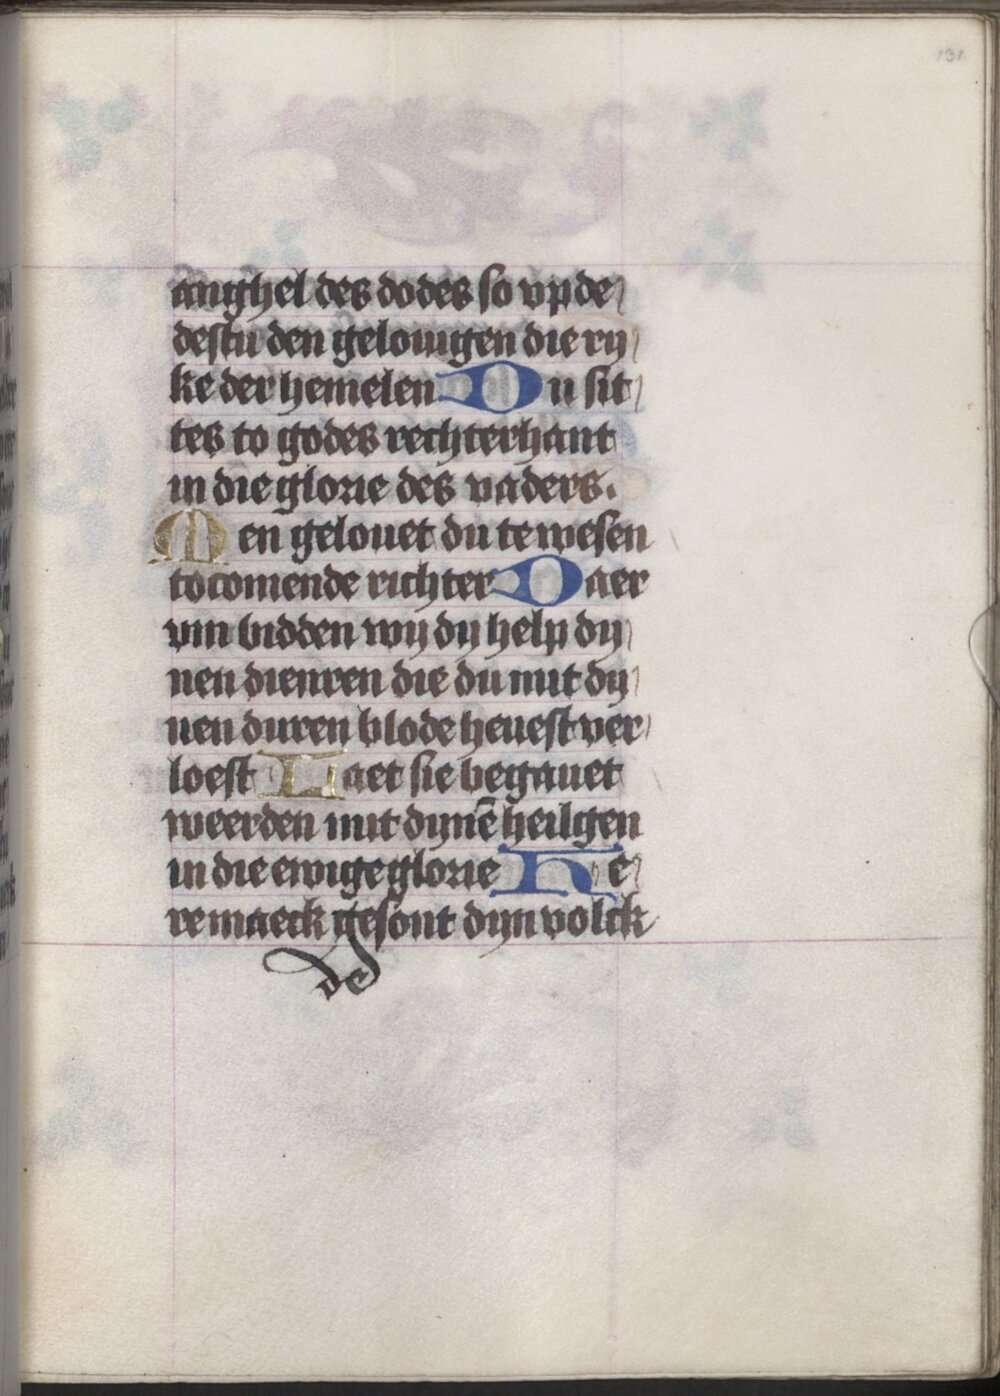 131
anghel des dodes so vp de
destu den gelouigen die ry
ke der hemelen Du sit
tes to godes rechterhant
in die glorie des vaders.
Men gelouet du te wesen
tocomende richter Daer
vm bidden wy dy help dy
nen dienren die du mit dy
nen duren blode heuest ver
loest Laet sie begauet
weerden mit dynē heilgen
in die ewige glorie He
re maeck gesont dyn volck